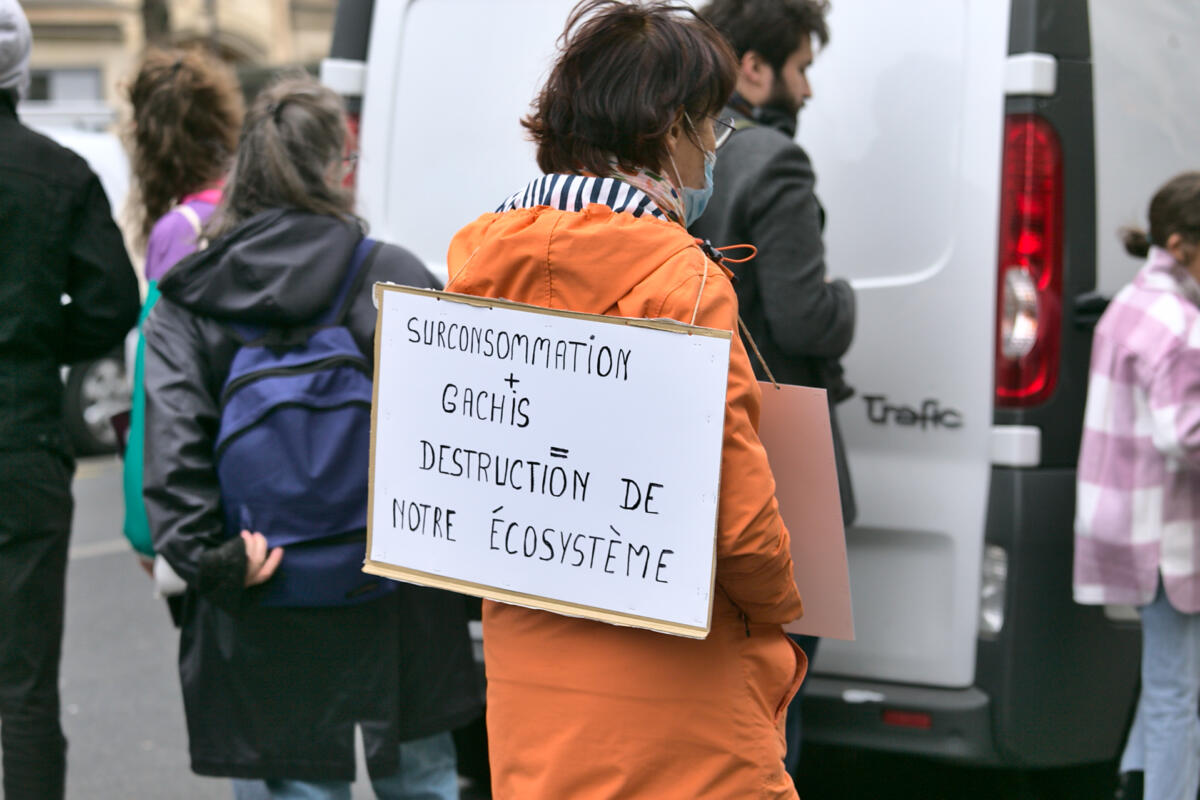 SURCONSOMMATiON
+
GACHiS
=
DESTRUCTiON DE
NOTRE ÉCOSYSTÈME
Trafic